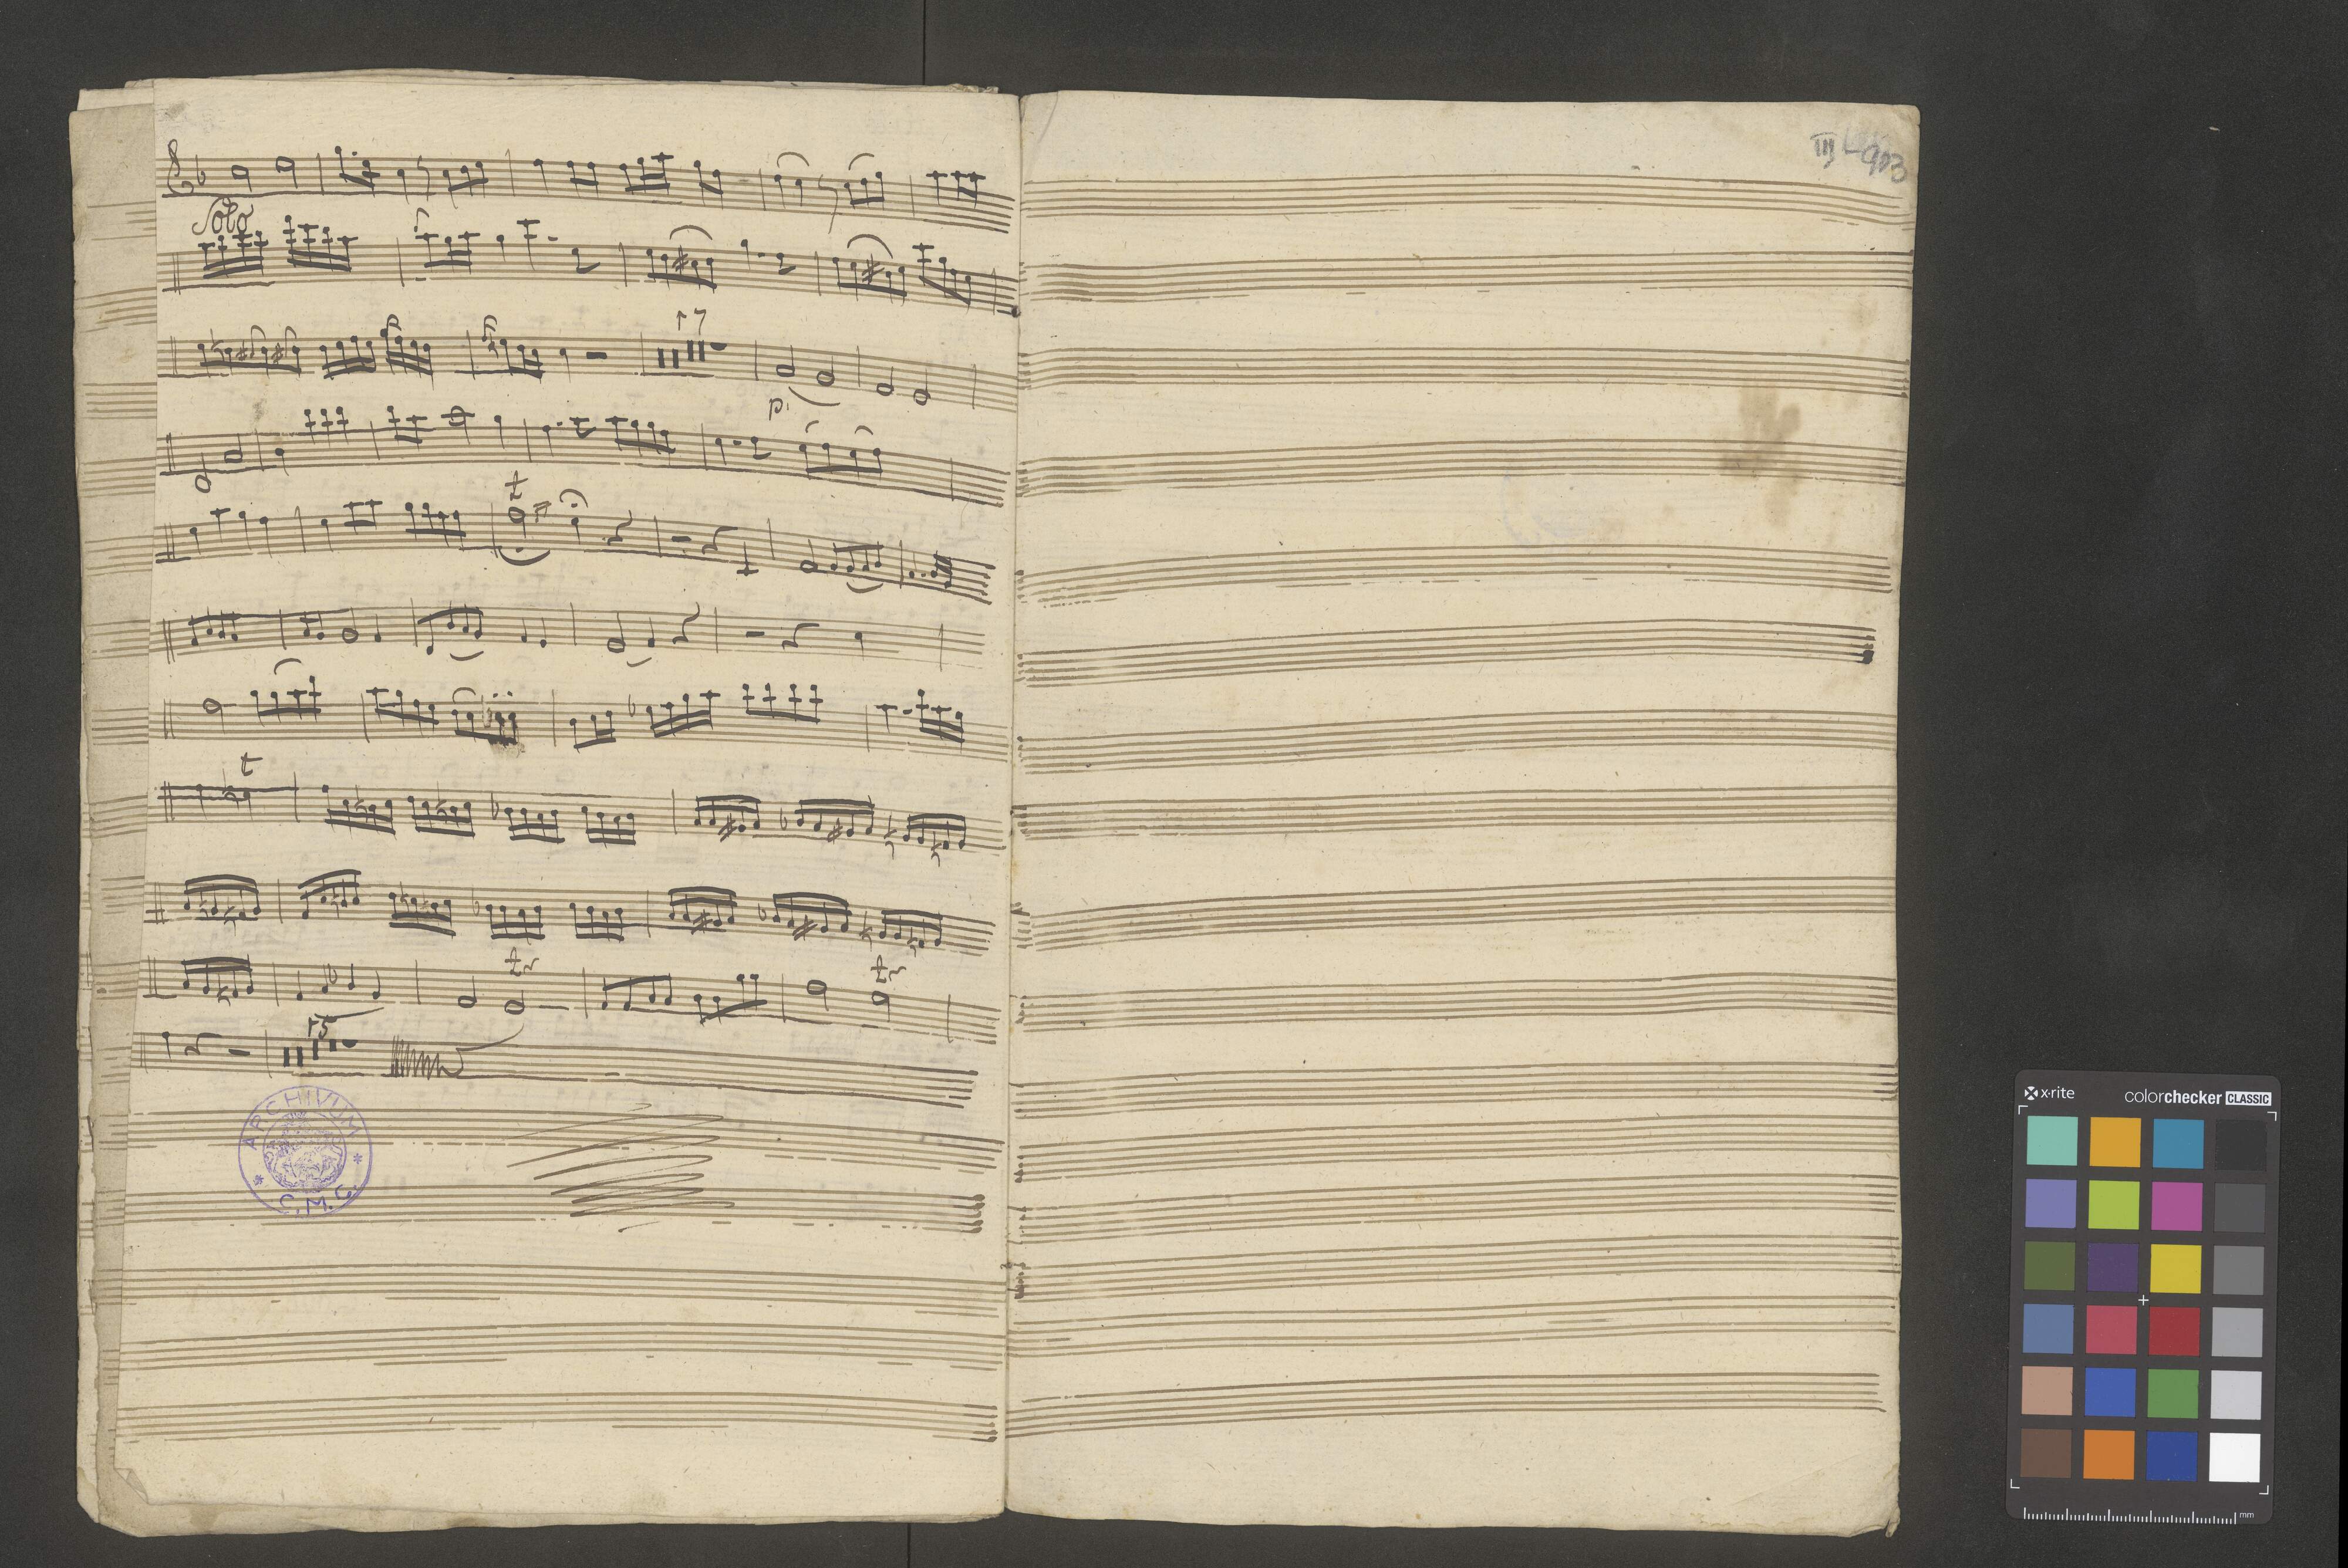 Solo
17
p:
t
t
tr
tr
15
ARCHIVUM
C.M.C.
III L 903
x·rite
colorchecker CLASSIC
mm